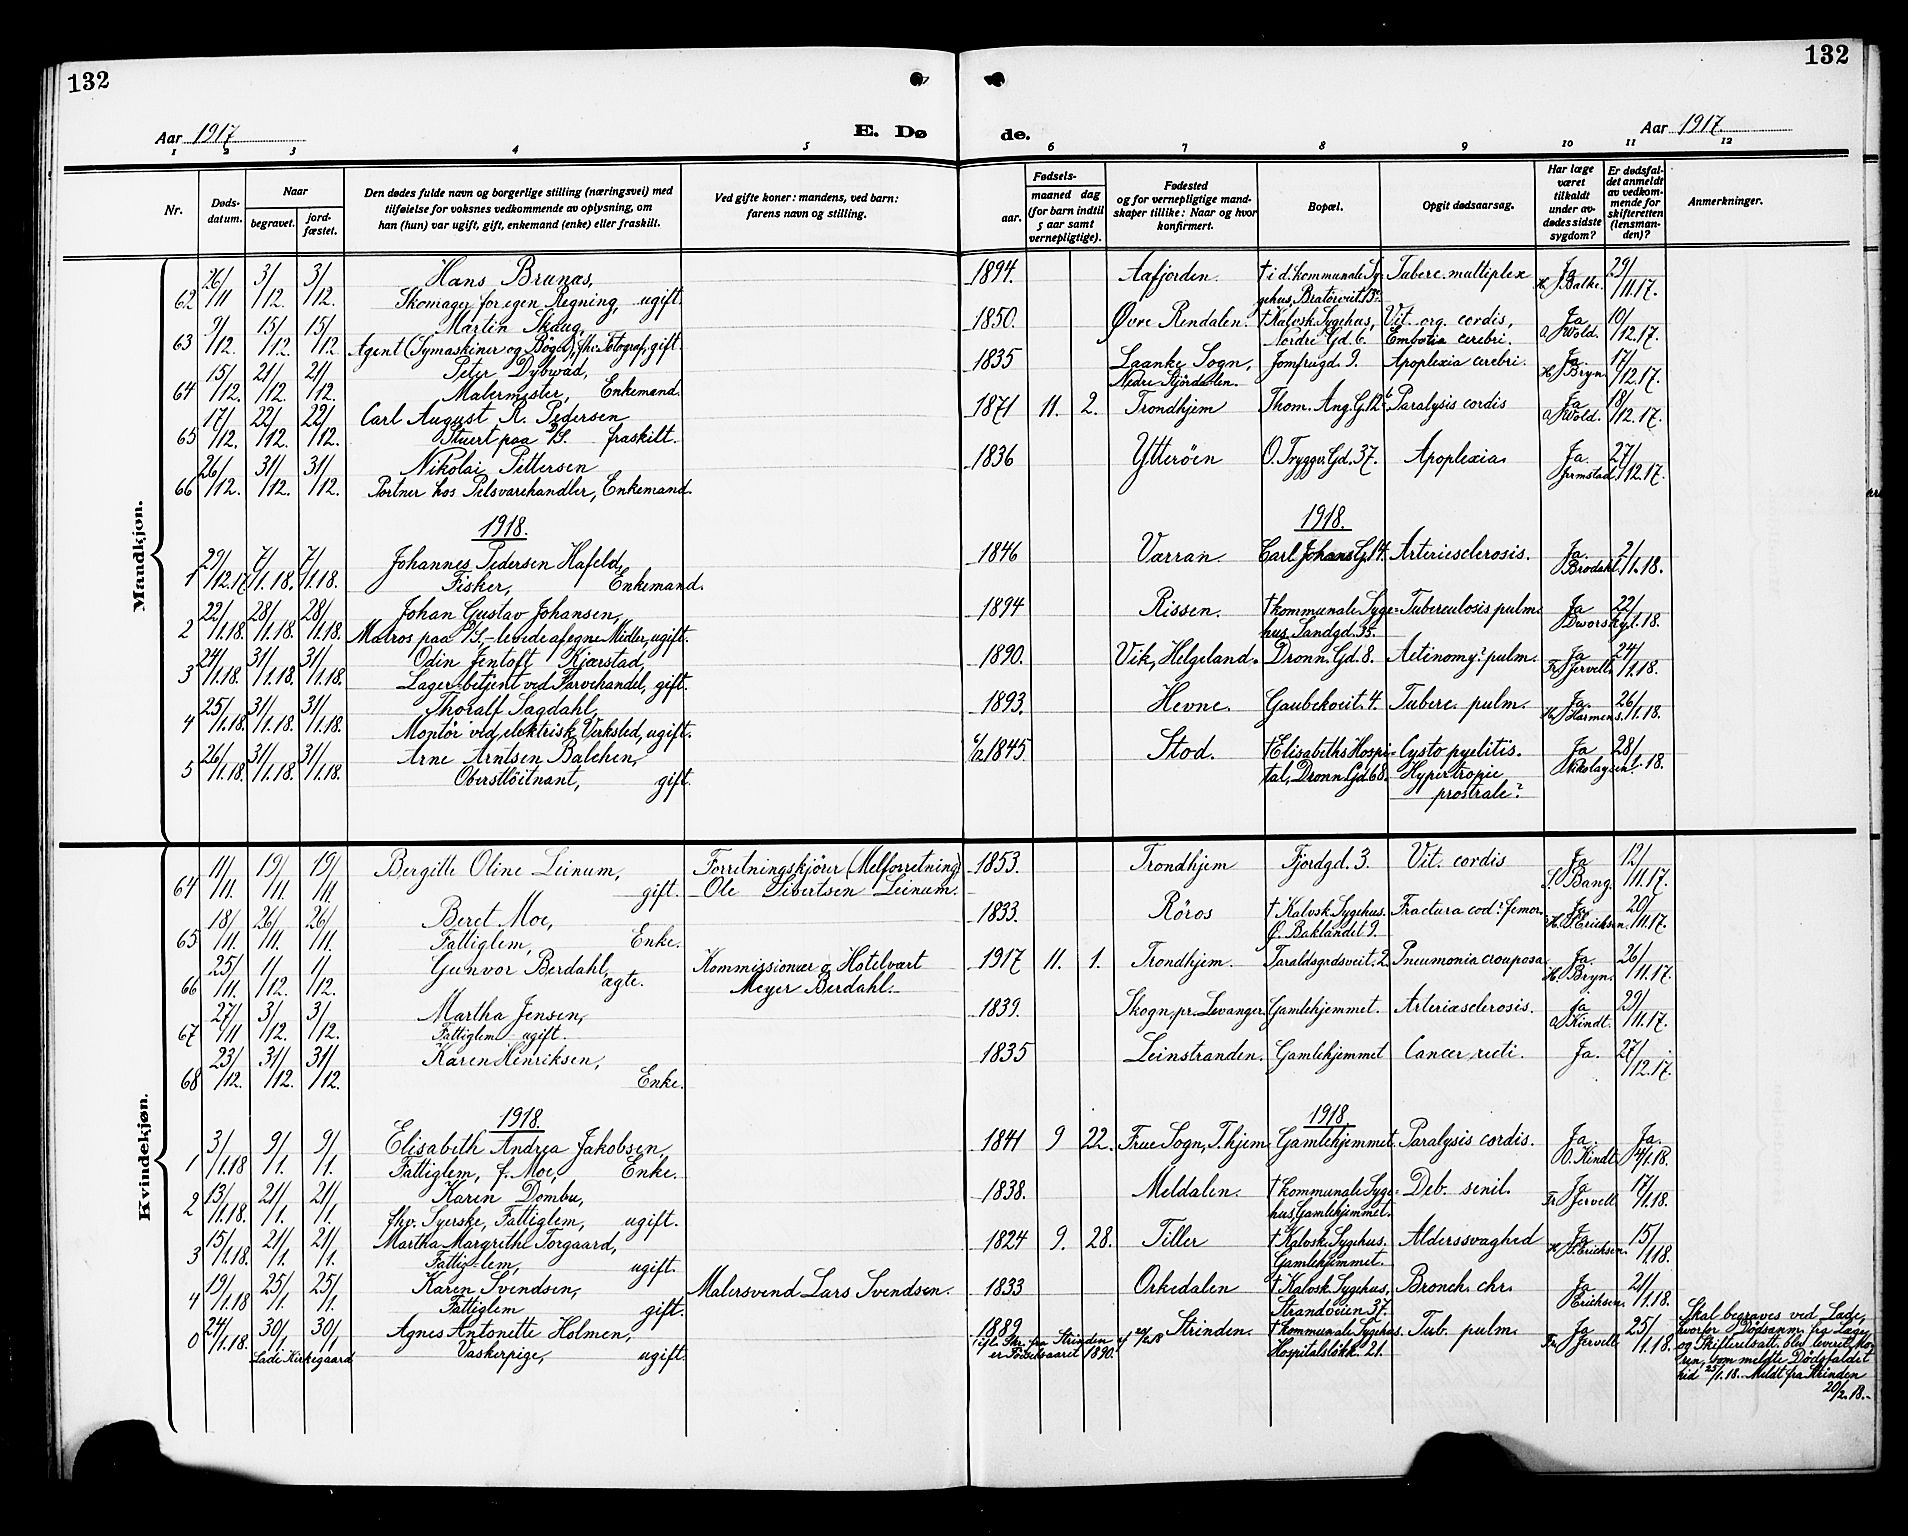 132
132
Aar 1917
E. Dø
de.
Aar 1917
1 2 3 4 5 6 7 8 9 10 11 12
Nr.
Døds-
datum.
Naar
begravet.
jord-
fæstet.
Den dødes fulde navn og borgerlige stilling (næringsvei) med
tilføielse for voksnes vedkommende av oplysning, om
han (hun) var ugift, gift, enkemand (enke) eller fraskilt.
Ved gifte koner: mandens, ved barn:
farens navn og stilling.
Fødsels-
aar.
maaned dag
(for barn indtil
5 aar samt
vernepligtige).
Fødested
og for vernepligtige mand-
skaper tillike: Naar og hvor
konfirmert.
Bopæl.
Opgit dødsaarsag.
Har læge
været
tilkaldt
under av-
dødes sidste
sygdom?
Er dødsfal-
det anmeldt
av vedkom-
mende for
skifteretten
(lensman-
den)?
Anmerkninger.
Mandkjøn.
62 26/11 3/12. 3/12. Hans Brunas, 1894. Aafjorden. † i d. kommunale Sy- Tuberc. multiplex Ja 29/11.17.
Skomager for egen Regning, ugift. gehus, Bratörveit. H. J. Batke.
63 9/12. 15/12. 15/12 Martin Skaug, 1850. Øvre Rendalen. † Kalvsk. Sygehus, Vit. org. cordis, Ja 10/12.17.
Agent (Symaskiner og Bøger), fhv. Fotograf, gift. Nordre Gd. 6. Embolia cerebri. Wold.
64 15/12. 21/12. 21/12. Peter Dybwad, 1835 Laanke Sogn, Jomfrugd. 9. Apoplexia cerebri. Ja. 17/12.17.
Malermester, Enkemand. Nedre Stjördalen. H. Bryn
65 17/12. 22/12. 22/12. Carl August R. Pedersen 1871 11. 2. Trondhjem Thom. Ang. G. 12 b Paralysis cordis Ja 18/12.17.
Stuert paa D/S. fraskilt. Wold.
66 26/12. 31/12. 31/12. Nikolai Pettersen 1836 Ytterøen O. Tryggv. Gd. 37. Apoplexia. Ja. 27/12.17.
Portner hos Pelsvarehandler, Enkemand. Grmstad
1918. 1918.
1 29/12.17 7/1.18. 7/1.18. Johannes Pedersen Hafeld, 1846 Værran. Carl Johans G. 14. Arteriesclerosis. Ja. 2/1.18.
Fisker, Enkemand. Brodahl
2 22/1.18. 28/1.18. 28/1.18. Johan Gustav Johansen, 1894 Rissen. † kommunale Syge- Tuberculosis pulm. Ja 22/1.18.
Matros paa D/S. - levede af egne Midler, ugift. hus Sandgd. 35. Dworsky
3 24/1.18. 31/1.18. 31/1.18. Odin Jentoft Kjærstad, 1890. Vik, Helgeland. Dronn. Gd. 8. Actinomy? pulm. Ja 24/1.18.
Lager-betjent ved Farvehandel, gift. Fr. Jervell
4 25/1.18. 31/1.18. 31/1.18. Thoralf Sagdahl, 1893. Hevne. Gaubekveit. 4. Tuberc. pulm. Ja. 26/1.18.
Montör ved elektrisk Verksted, ugift. H. Harmens
5 26/1.18. 31/1.18. 31/1.18. Arne Arntsen Balchen, 6/2 1845. Stod. † Elisabeths Hospi- Cysto pyelitis. Ja 28/1.18.
Oberstlöitnant, gift. tal, Dronn. Gd. 68. Hypertropie Nikolaysen
prostrale?
Kvindekjøn.
64 11/11. 19/11. 19/11. Bergitte Oline Leinum, Forretningskjörer (Melforretning) 1853. Trondhjem Fjordgd. 3. Vit. cordis Ja 12/11.17.
gift. Ole Sibertsen Leinum. Bang.
65 18/11. 26/11. 26/11. Beret Moe, 1833. Röros † Kalvsk. Sygehus. Fractura cod? femor. Ja. 20/11.17.
Fattiglem, Enke. Ø. Baklandet 9. H. P. Erichsen.
66 25/11. 1/12. 1/12. Gunvor Berdahl, Kommissionær o Hotelvært 1917 11. 1. Trondhjem. Taraldsgrdsveit. 2. Pneumonia crouposa Ja. 26/11.17.
ægte. Meyer Berdahl. H. Bryn.
67 27/11 3/12. 3/12. Martha Jensen, 1839. Skogn, pr. Levanger. Gamlehjemmet. Arteriæsclerosis. Ja 29/11.17.
Fattiglem ugift. Kindt.
68 23/12. 31/12. 31/12. Karen Henriksen, 1835 Leinstranden. Gamlehjemmet Cancer recti. Ja. 27/12.17.
Enke.
1918. 1918
1 3/1.18 9/1. 9/1. Elisabeth Andrea Jakobsen, 1841 9 22. Frue Sogn, T.hjem Gamlehjemmet. Paralysis cordis. Ja. Ja.
Fattiglem, f. Moe, Enke. O. Kindt 4/1.18.
2 13/1.18. 21/1. 21/1. Karen Dombu, 1838. Meldalen. † kommunale Syge- Deb. senil. Ja 17/1.18.
fhv. Syerske, Fattiglem, ugift. hus Gamlehjemmet. Fr. Jervell
3 15/1.18. 21/1. 21/1. Martha Margrethe Torgaard, 1824 9. 28. Tiller † Kalvsk. Sygehus. Alderssvaghed Ja 15/1.18.
Fattig-lem, ugift. Gamlehjemmet. Erichsen.
4 19/1.18 25/1. 25/1. Karen Svendsen, Malersvend Lars Svendsen. 1833 Orkedalen † Kalvsk. Sygehus, Bronch. chr. Ja 21/1.18.
Fattiglem gift. Strandveien 37. Erichsen
0 24/1.18. 30/1. 30/1. Agnes Antonette Holmen, 1889 Strinden. † kommunale Sygehus. Tub. pulm. Ja 25/1.18.
Lade Kirkegaard Vaskerpige, ugift. ifl. Skr. fra Strinden af 20/2.18 Hospitalslökk. 21. Fr. Jervell
er Födselsaaret 1890.
Skal begraves ved Lade,
hvorfor Dødsanm. fig Læge
og Skifteretsatt. blev leveret Mo-
ren, som meldte Dödsfaldet
hid 25/1.18. Meldt fra Strinden
20/2.18.-